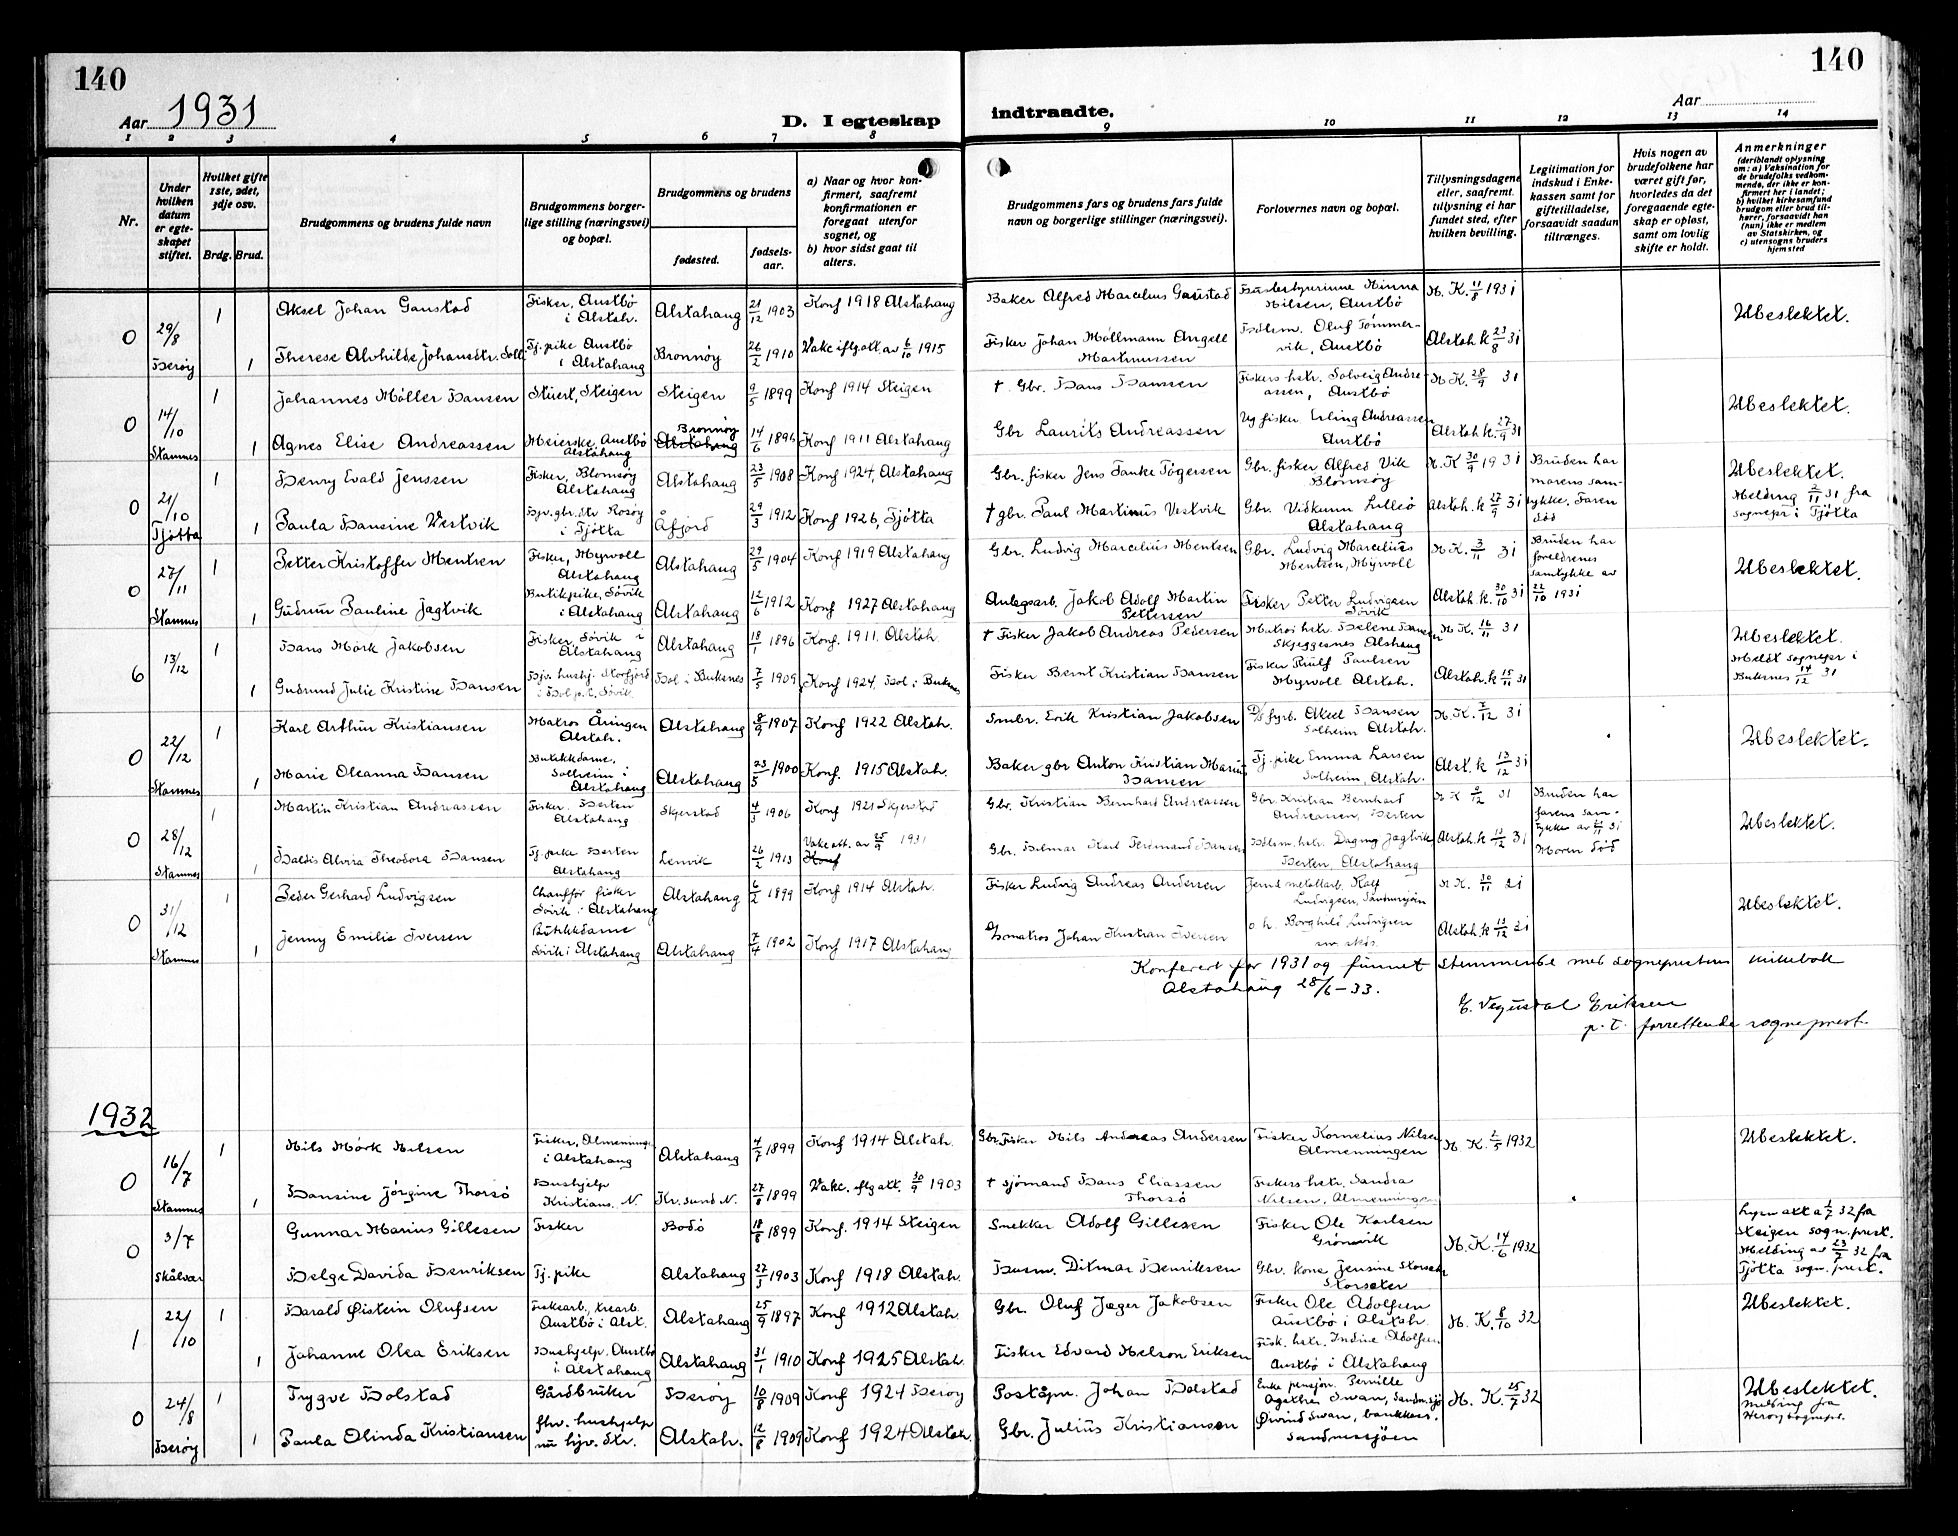 140
140
Aar 1931
D. I egteskap
indtraadte.
Aar
1 2 3 4 5 6 7 8
9 10 11 12 13 14
Nr.
Under hvilken datum er egteskapet stiftet.
Hvilket gifte 1ste, 2det, 3dje osv.
Brdg. Brud.
Brudgommens og brudens fulde navn
Brudgommens borgerlige stilling (næringsvei) og bopæl.
Brudgommens og brudens
fødested.
fødselsaar.
a) Naar og hvor konfirmert, saafremt konfirmationen er foregaat utenfor sognet, og
b) hvor sidst gaat til alters.
Brudgommens fars og brudens fars fulde navn og borgerlige stillinger (næringsvei).
Forlovernes navn og bopæl.
Tillysningsdagene eller, saafremt tillysning ei har fundet sted, efter hvilken bevilling.
Legitimation for indskud i Enkekassen samt for giftetilladelse, forsaavidt saadan tiltrænges.
Hvis nogen av brudefolkene har været gift før, hvorledes da det foregaaende egteskap er opløst, samt om lovlig skifte er holdt.
Anmerkninger
(deriblandt oplysning om: a) Vaksination for de brudefolks vedkommende, der ikke er konfirmert her i landet; b) hvilket kirkesamfund brudgom eller brud tilhører, forsaavidt han (hun) ikke er medlem av Statskirken, og c) utensogns bruders hjemsted
0 29/8 Herøy
1 Aksel Johan Gaustad Fisker, Austbø i Alstah. Alstahaug 21/12 1903 Konf 1918 Alstahaug Baker Alfred Marcelius Gaustad Husbestyrerinne Minna Nilsen, Austbø N. K. 11/8 1931 Ubeslektet.
1 Therese Alvhilde Johansdtr. Soll. Tj. pike Austbø i Alstahaug Brønnøy 26/2 1910 Vakc iflg att. av 6/10 1915 Fisker Johan Møllmann Angell Martinussen Oluf Tømmervik, Austbø Alstah k 23/8 31
0 14/10 Stamnes
1 Johannes Møller Hansen Stuert, Steigen Steigen 9/5 1899 Konf 1914 Steigen † Gbr. Hans Hanssen Fiskers hstr. Solveig Andreassen, Austbø N K. 28/9 31 Ubeslektet.
1 Agnes Elise Andreassen Meierske, Austbø Alstahaug Brønnøy Alstahaug 14/6 1896 Konf 1911 Alstahaug Gbr Laurits Andreassen Ug fisker Erling Andreassen Austbø Alstah k. 27/9 31
0 21/10 Tjøtta
1 Henry Evald Jenssen Fisker, Blomsøy Alstahaug Alstahaug 23/5 1908 Konf 1924, Alstahaug Gbr. fisker Jens Tanke Tøgersen Gbr. fisker Alfred Vik Blomsøy N. K 30/9 1931 Bruden har morens samtykke. Faren død Ubeslektet. Melding 2/11 31 fra sognepr i Tjøtta
1 Paula Hansine Vestvik Hjv. gbr. dtr Rosøy i Tjøtta Åfjord 29/3 1912 Konf 1926, Tjøtta † gbr. Paul Martinus Vestvik Gbr. Vidkunn Lillesø Alstahaug Alstah. k 27/9 31
0 27/11 Stamnes
1 Petter Kristoffer Mentzen Fisker, Myrvoll Alstahaug Alstahaug 29/5 1904 Konf 1919 Alstahaug Gbr. Ludvig Marcelius Mentzen Gbr. Ludvig Marcelius Mentzen, Myrvoll N K. 3/11 31 Bruden har foreldrenes samtykke av 22/10 1931 Ubeslektet.
1 Gudrun Pauline Jagtvik Butikpike, Søvik i Alstahaug Alstahaug 12/6 1912 Konf 1927 Alstahaug Anlegsarb. Jakob Adolf Martin Pettersen Fisker Petter Ludvigsen Søvik Alstah. k. 30/10 31
6 13/12
1 Hans Mørk Jakobsen Fisker Søvik i Alstahaug Alstahaug 18/1 1896 Konf. 1911. Alstah. † Fisker Jakob Andreas Pedersen Matros hstr. Helene Hansen Skjeggesnes Alsthaug N K. 16/11 31 Ubeslektet. Meldt sognepr i Buksnes 14/12 31
1 Gudrund Julie Kristine Hansen Hjv. hushj. Storfjord i Hol p.t. Søvik Hol i Buksnes 7/5 1909 Konf 1924, Hol i Buksnes Fisker Bernt Kristian Hansen Fisker Paulsen Myrvoll Alstah. Alstah. k 15/11 31
0 22/12 Stamnes
1 Karl Arthur Kristiansen Matros Åringen Alstah. Alstahaug 8/9 1907 Konf 1922 Alstah. Smbr. Erik Kristian Jakobsen D/S fyrb. Aksel Hansen Solheim Alstah. N. K. 7/12 31 Ubeslektet.
1 Marie Oleanna Hansen Butikkdame, Solheim i Alstahaug Alstahaug 23/5 1900 Konf. 1915 Alstah. Baker gbr Anton Kristian Marius Hansen Tj. pike Emma Larsen Solheim, Alstah. Alst. k 13/12 31
0 28/12 Stamnes
1 Martin Kristian Andreassen Fisker. Herten Alstahaug Skjerstad 4/3 1906 Konf 1921 Skjerstad Gbr. Kristian Bernhard Andreassen Gbr. Kristian Bernhard Andreassen, Herten N K 9/12 31 Bruden har farens samtykke av 21/11 31 Moren død Ubeslektet.
1 Haldis Alvira Theodora Hansen Tj. pike Herten Alstahaug Lenvik 26/2 1913 Vakc att. av 25/9 1931 Konf Gbr. Hilmar Karl Ferdinand Hansen Dagny Jagtvik Herten, Alstahaug Alstah. k 13/12 31
0 31/12 Stamnes
1 Peder Gerhard Ludvigsen Chauffør fisker Søvik i Alstahaug Alstahaug 6/2 1899 Konf 1914 Alstah. Fisker Ludvig Andreas Andersen Ludvigsen, Sandnessjøen N K. 30/11 31 Ubeslektet.
1 Jenny Emilie Iversen Butikkdame Søvik i Alstahaug Alstahaug 7/4 1902 Konf 1917 Alstahaug Johan Kristian Iversen Borghild Ludvigsen Alstah. k 13/12 31
Konferert for 1931 og funnet stemmende med sogneprestens kirkebok
Alstahaug 28/6-33.
E. Vegusdal Eriksen
p. t. forrettende sogneprest.
1932
0 16/7 Stamnes
1 Nils Mørk Nilsen Fisker, Almenningen i Alstahaug Alstahaug 4/7 1899 Konf 1914 Alstah. Gbr. Fisker Nils Andreas Andersen Fisker Kornelius Nilsen Almenningen N. K. 2/5 1932 Ubeslektet.
1 Hansine Jørgine Thorsø Hushjelp Kristians. N. Kr. sund N. 27/8 1899 Vakc. iflg att. 30/9 1903 † sjømand Hans Eliassen Thorsø Fiskers hstr. Sandra Nilsen, Almenningen
0 3/7 Skålvær
Gunnar Marius Gillesen Fisker Bodø 18/8 1899 Konf. 1914 Steigen Snekker Adolf Gillesen Fisker Ole Karlsen Grønsvik N. K. 14/6 1932 att a 1/7 32 fra Steigen sogn. prest. Melding av 23/7 32 fra Tjøtta sogn. prest.
Helge Davida Henriksen Tj. pike Alstahaug 27/3 1903 Konf 1918 Alstah. Husm. Ditmar Henriksen Gbr. kone Jensine Storseter Storseter
1 22/10
1 Harald Øistein Olufsen Fiskearb., trearb. Austbø i Alst. Alstahaug 25/9 1897 Konf 1912 Alstah. Gbr. Oluf Jæger Jakobsen Fisker Ole Adolfsen Austbø i Alstah. N. K. 8/10 32 Ubeslektet.
1 Johanne Olea Eriksen Hushjelp. Austbø i Alstahaug Alstahaug 31/1 1910 Konf 1925 Alstah. Fisker Edvard Nelson Eriksen Fisk. hstr. Indine Adolfsen Austbø i Alstahaug
0 24/8 Herøy
1 Trygve Holstad Gårdbruker Herøy 10/8 1909 Konf 1924 Herøy Poståpn. Johan Holstad Enke pensjon. Pernille Agathe Swan, Sandn.sjø N. K. 25/7 32 Ubeslektet. Melding fra Herøy sognepr.
1 Paula Olinda Kristiansen fhv. hushjelp nu hjv. dtr. Alstah. 12/8 1909 Konf 1924 Alstah. Gbr. Julius Kristiansen Øivind Swan, bankkass. Sandnessjøen